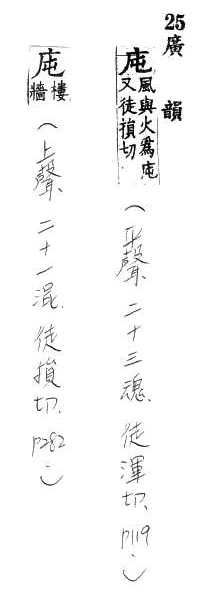 25廣韻
庉風與火爲庉又徒損切(平聲、二十三魂、徒渾切、p119.)
庉樓牆(上聲、二十一混、徒損切、p282.)